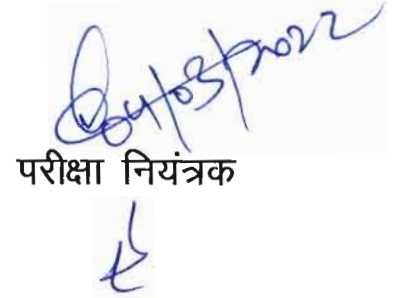 04/03/2022
परीक्षा नियंत्रक